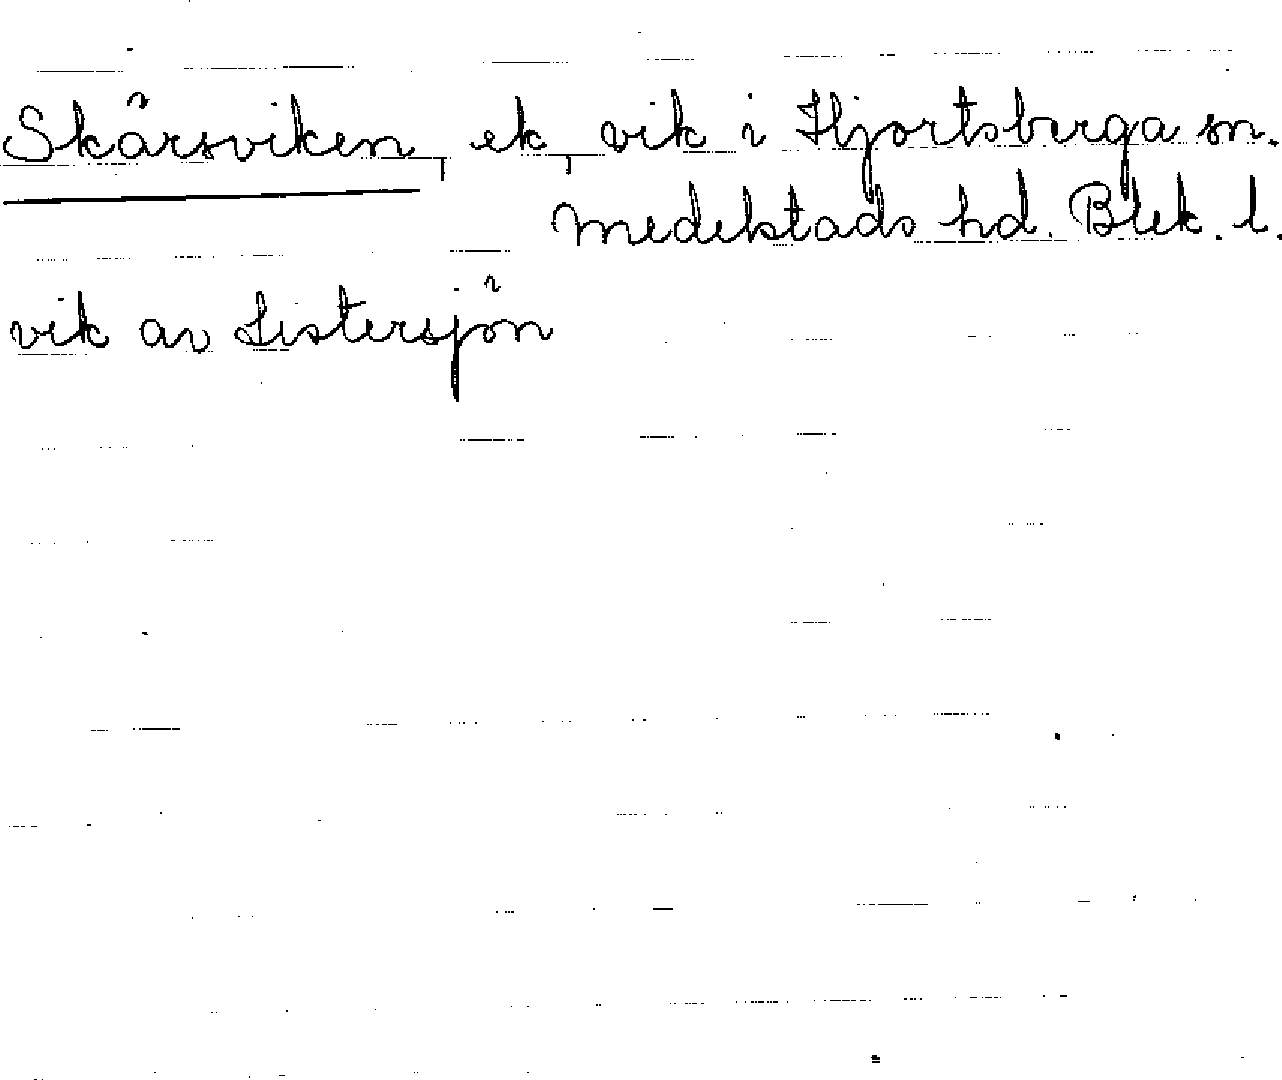 Skärsviken, ek, vik i Hjortsberga sn.
Medelstads hd. Blek. l.
vik av Listersjön